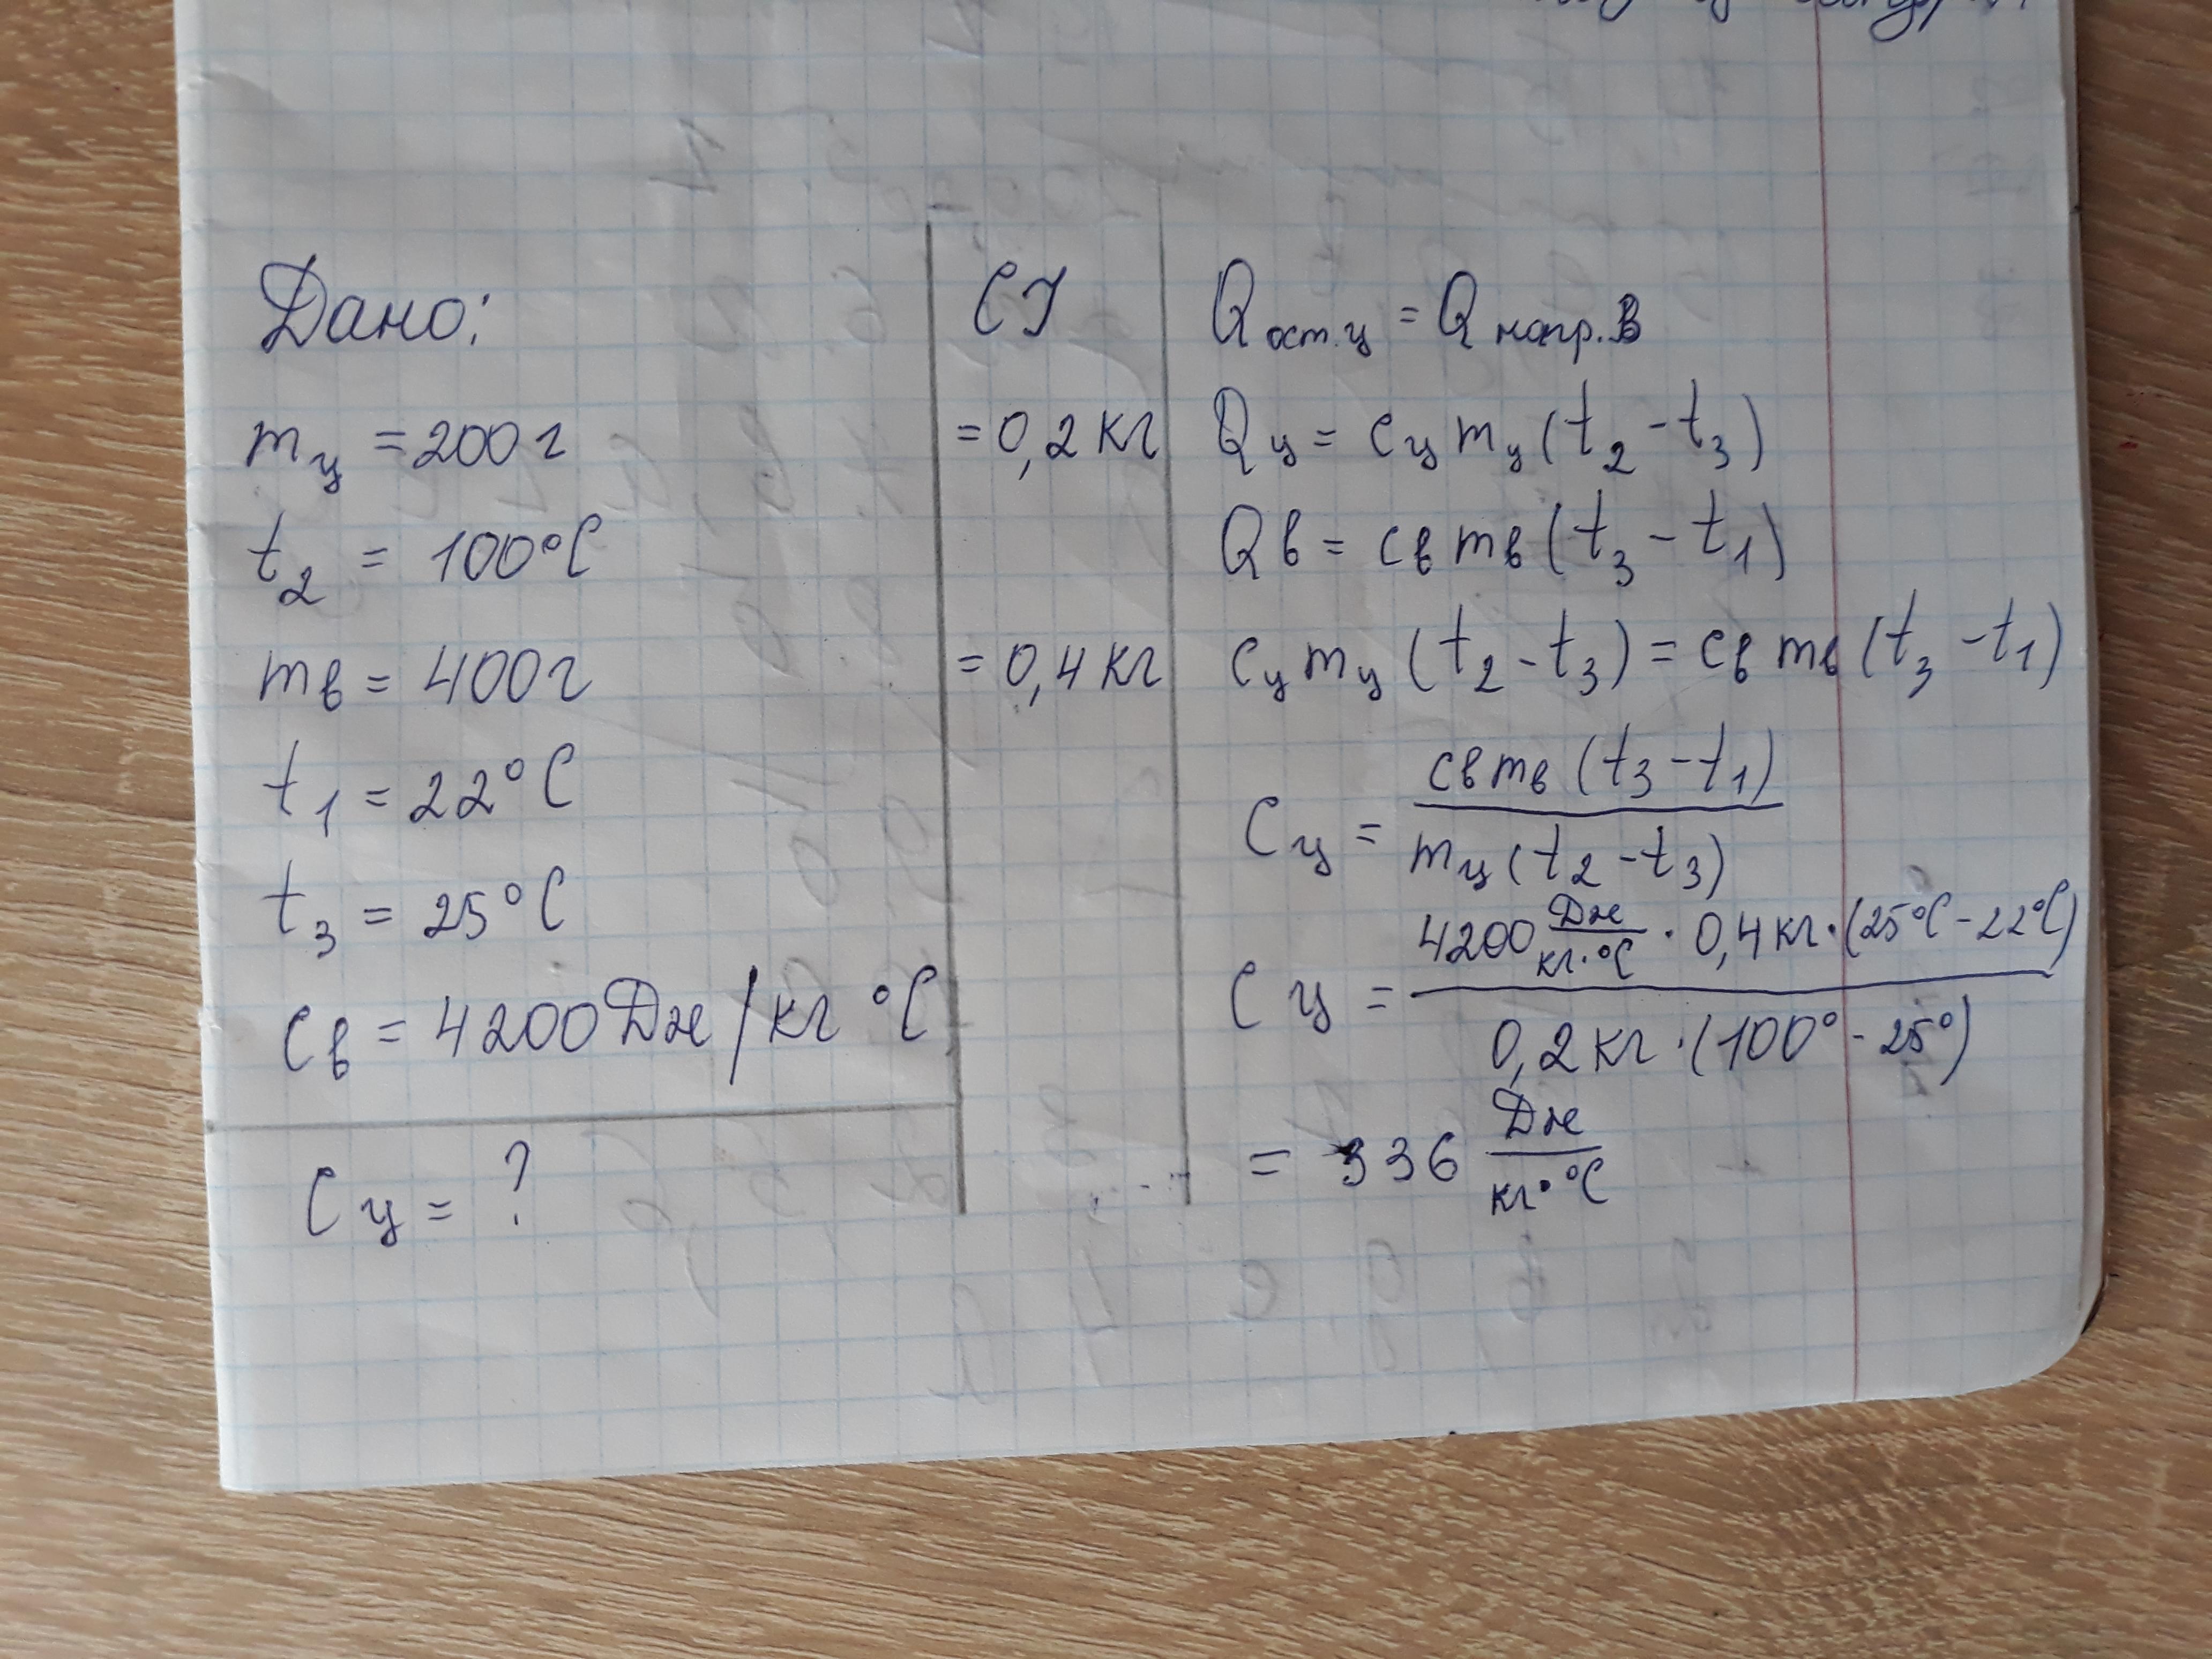 Дано:
m ц = 200 г
t₂ = 100°C
m в = 400 г
t₁ = 22°C
t₃ = 25°C
C в = 4200 Дж/кг °C
C ц = ?
СІ
= 0,2 кг
= 0,4 кг
Q ост.ц = Q нагр.в
Q ц = c ц m ц (t₂ - t₃)
Q в = c в m в (t₃ - t₁)
c ц m ц (t₂ - t₃) = c в m в (t₃ - t₁)
C ц = c в m в (t₃ - t₁) / m ц (t₂ - t₃)
C ц = 4200 Дж/кг·°C · 0,4 кг · (25°C - 22°C) / 0,2 кг · (100° - 25°)
= 336 Дж/кг·°C